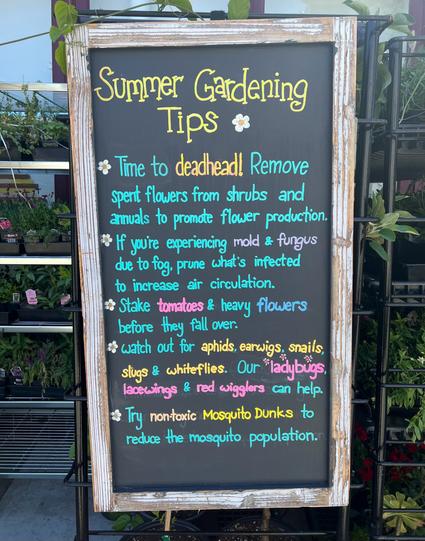 Summer Gardening
Tips
Time to deadhead! Remove
spent flowers from shrubs and
annuals to promote flower production.
If you're experiencing mold & fungus
due to fog, prune what's infected
to increase air circulation.
Stake tomatoes & heavy flowers
before they fall over.
watch out for aphids, earwigs, snails,
slugs & whiteflies. Our ladybugs,
lacewings & red wigglers can help.
Try non-toxic Mosquito Dunks to
reduce the mosquito population.